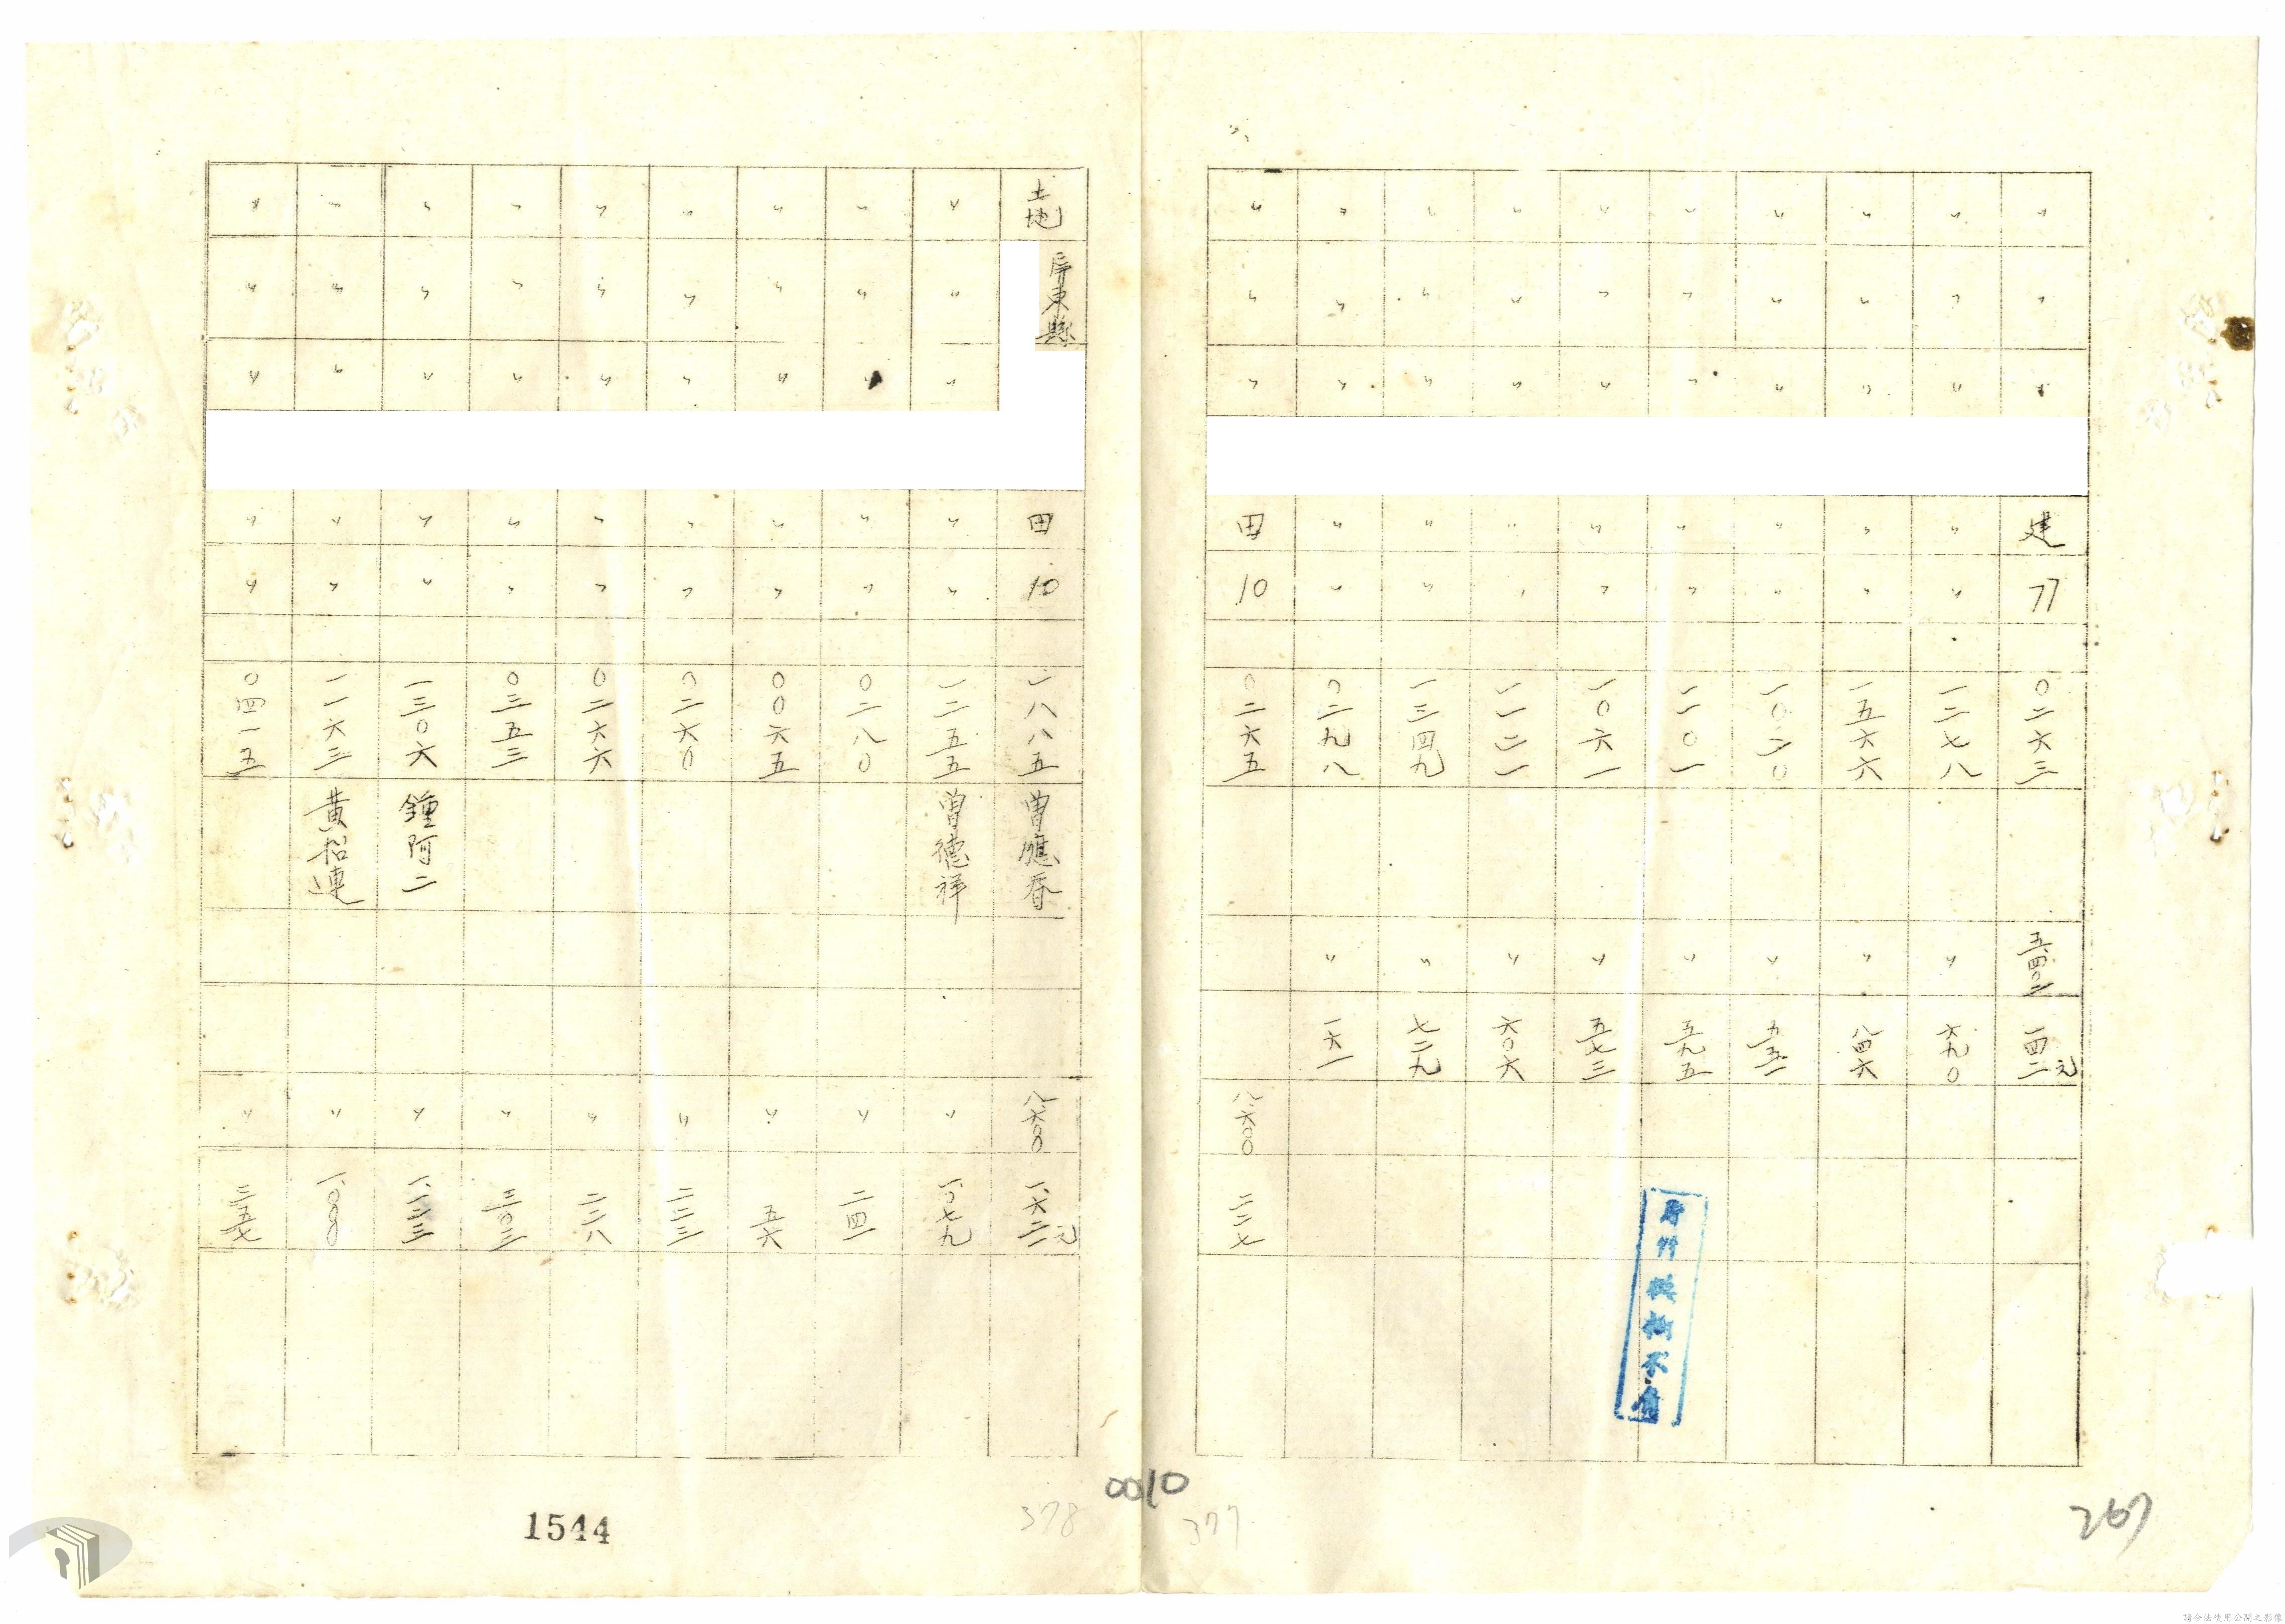 〃 〃 〃 建 77 〇二六三 五四〇二 一四二元
〃 〃 〃 〃 〃 一二七八 〃 六九〇
〃 〃 〃 〃 〃 一五六六 〃 八四六
〃 〃 〃 〃 〃 一〇二〇 〃 五五一
〃 〃 〃 〃 〃 一一〇一 〃 五九五
〃 〃 〃 〃 〃 一〇六一 〃 五七三
〃 〃 〃 〃 〃 一一二一 〃 六〇六
〃 〃 〃 〃 〃 一三四九 〃 七二九
〃 〃 〃 〃 〃 〇二九八 〃 一六一
〃 〃 〃 田 10 〇二六五 八六〇〇 二二七
267
377
0010
土地 屏東縣 田 10 一八八五 曾應春 八六〇〇 一、六二一元
〃 〃 〃 〃 〃 一二五五 曾德祥 〃 一、〇七九
〃 〃 〃 〃 〃 〇二八〇 〃 二四一
〃 〃 〃 〃 〃 〇〇六五 〃 五六
〃 〃 〃 〃 〃 〇二六〇 〃 二二三
〃 〃 〃 〃 〃 〇二六六 〃 二二八
〃 〃 〃 〃 〃 〇三五三 〃 三〇三
〃 〃 〃 〃 〃 一三〇六 鍾阿二 〃 一、一二三
〃 〃 〃 〃 〃 一一六三 黃招連 〃 一、〇〇〇
〃 〃 〃 〃 〃 〇四一五 〃 三五七
378
1544
請合法使用公開之影像